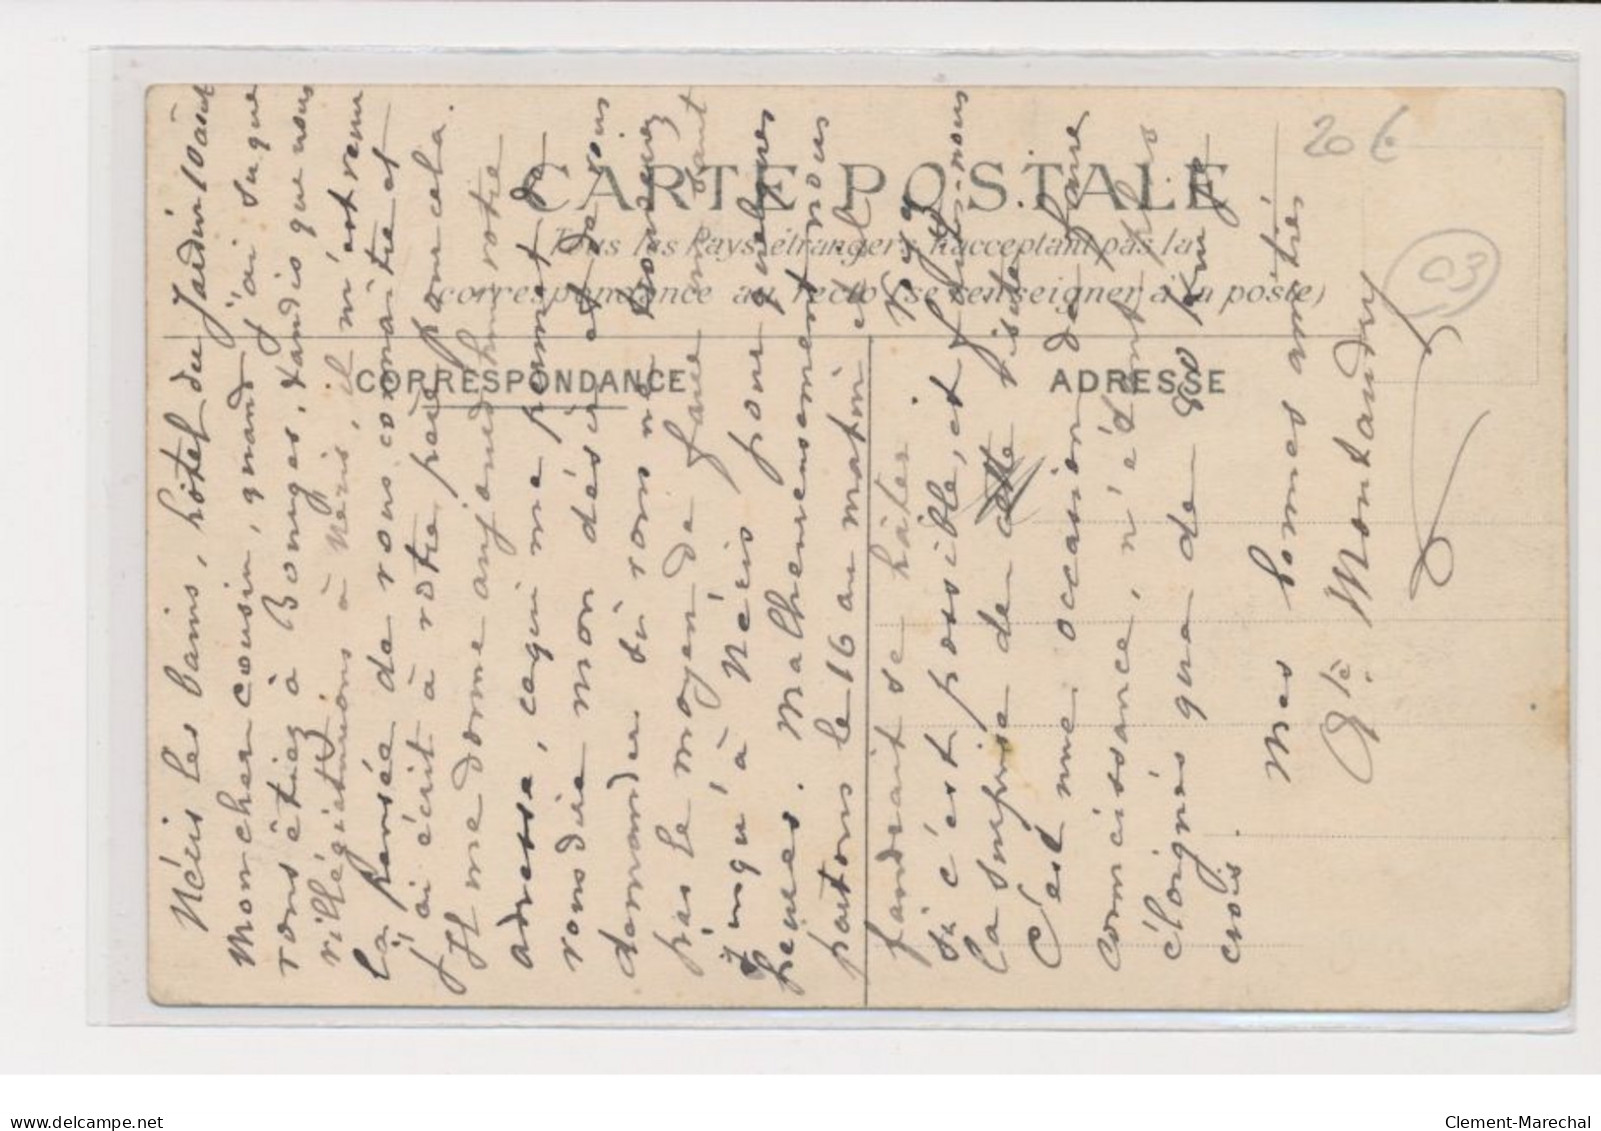 20 €
03
CARTE POSTALE
Tous les Pays étrangers n'acceptant pas la
correspondance au recto (se renseigner à la poste)
CORRESPONDANCE
ADRESSE
Néris les bains, hôtel du Jardin 10 août
Mon cher cousin, quand j'ai su que
vous étiez à Bourges, tandis que nous
villégiaturions à Néris, il m'est venu
la pensée de vous connaître et
j'ai écrit à votre père pour cela.
Il me donne aujourd'hui votre
adresse, ce qui me permet de
vous dire mon désir et de vous
demander si vous ne pourriez
pas le moyen de faire un saut
jusqu'à Néris pour quelques
heures. Malheureusement nous
partons le 16 au matin et il
faudrait se hâter.
si c'est possible, et faites-nous
la surprise de cette visite.
C'est une occasion de faire
connaissance, n'étant plus
éloignés que de 80 km je
crois.
Mes bonnes amitiés
Montandry
delcampe.net
Clement-Marechal